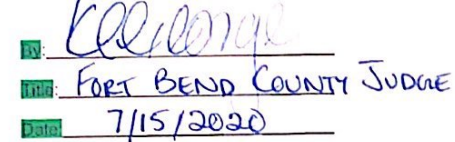 By:
Title: FORT BEND COUNTY JUDGE
Date: 7/15/2020